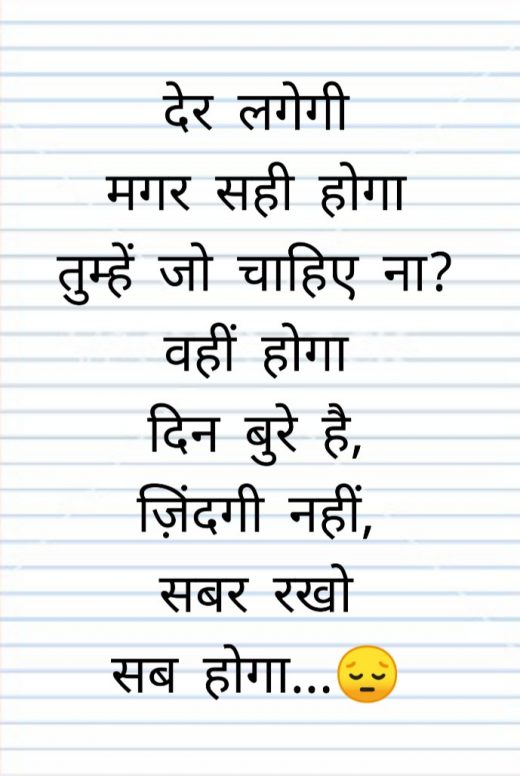 देर लगेगी
मगर सही होगा
तुम्हें जो चाहिए ना?
वहीं होगा
दिन बुरे है,
ज़िंदगी नहीं,
सबर रखो
सब होगा...😔